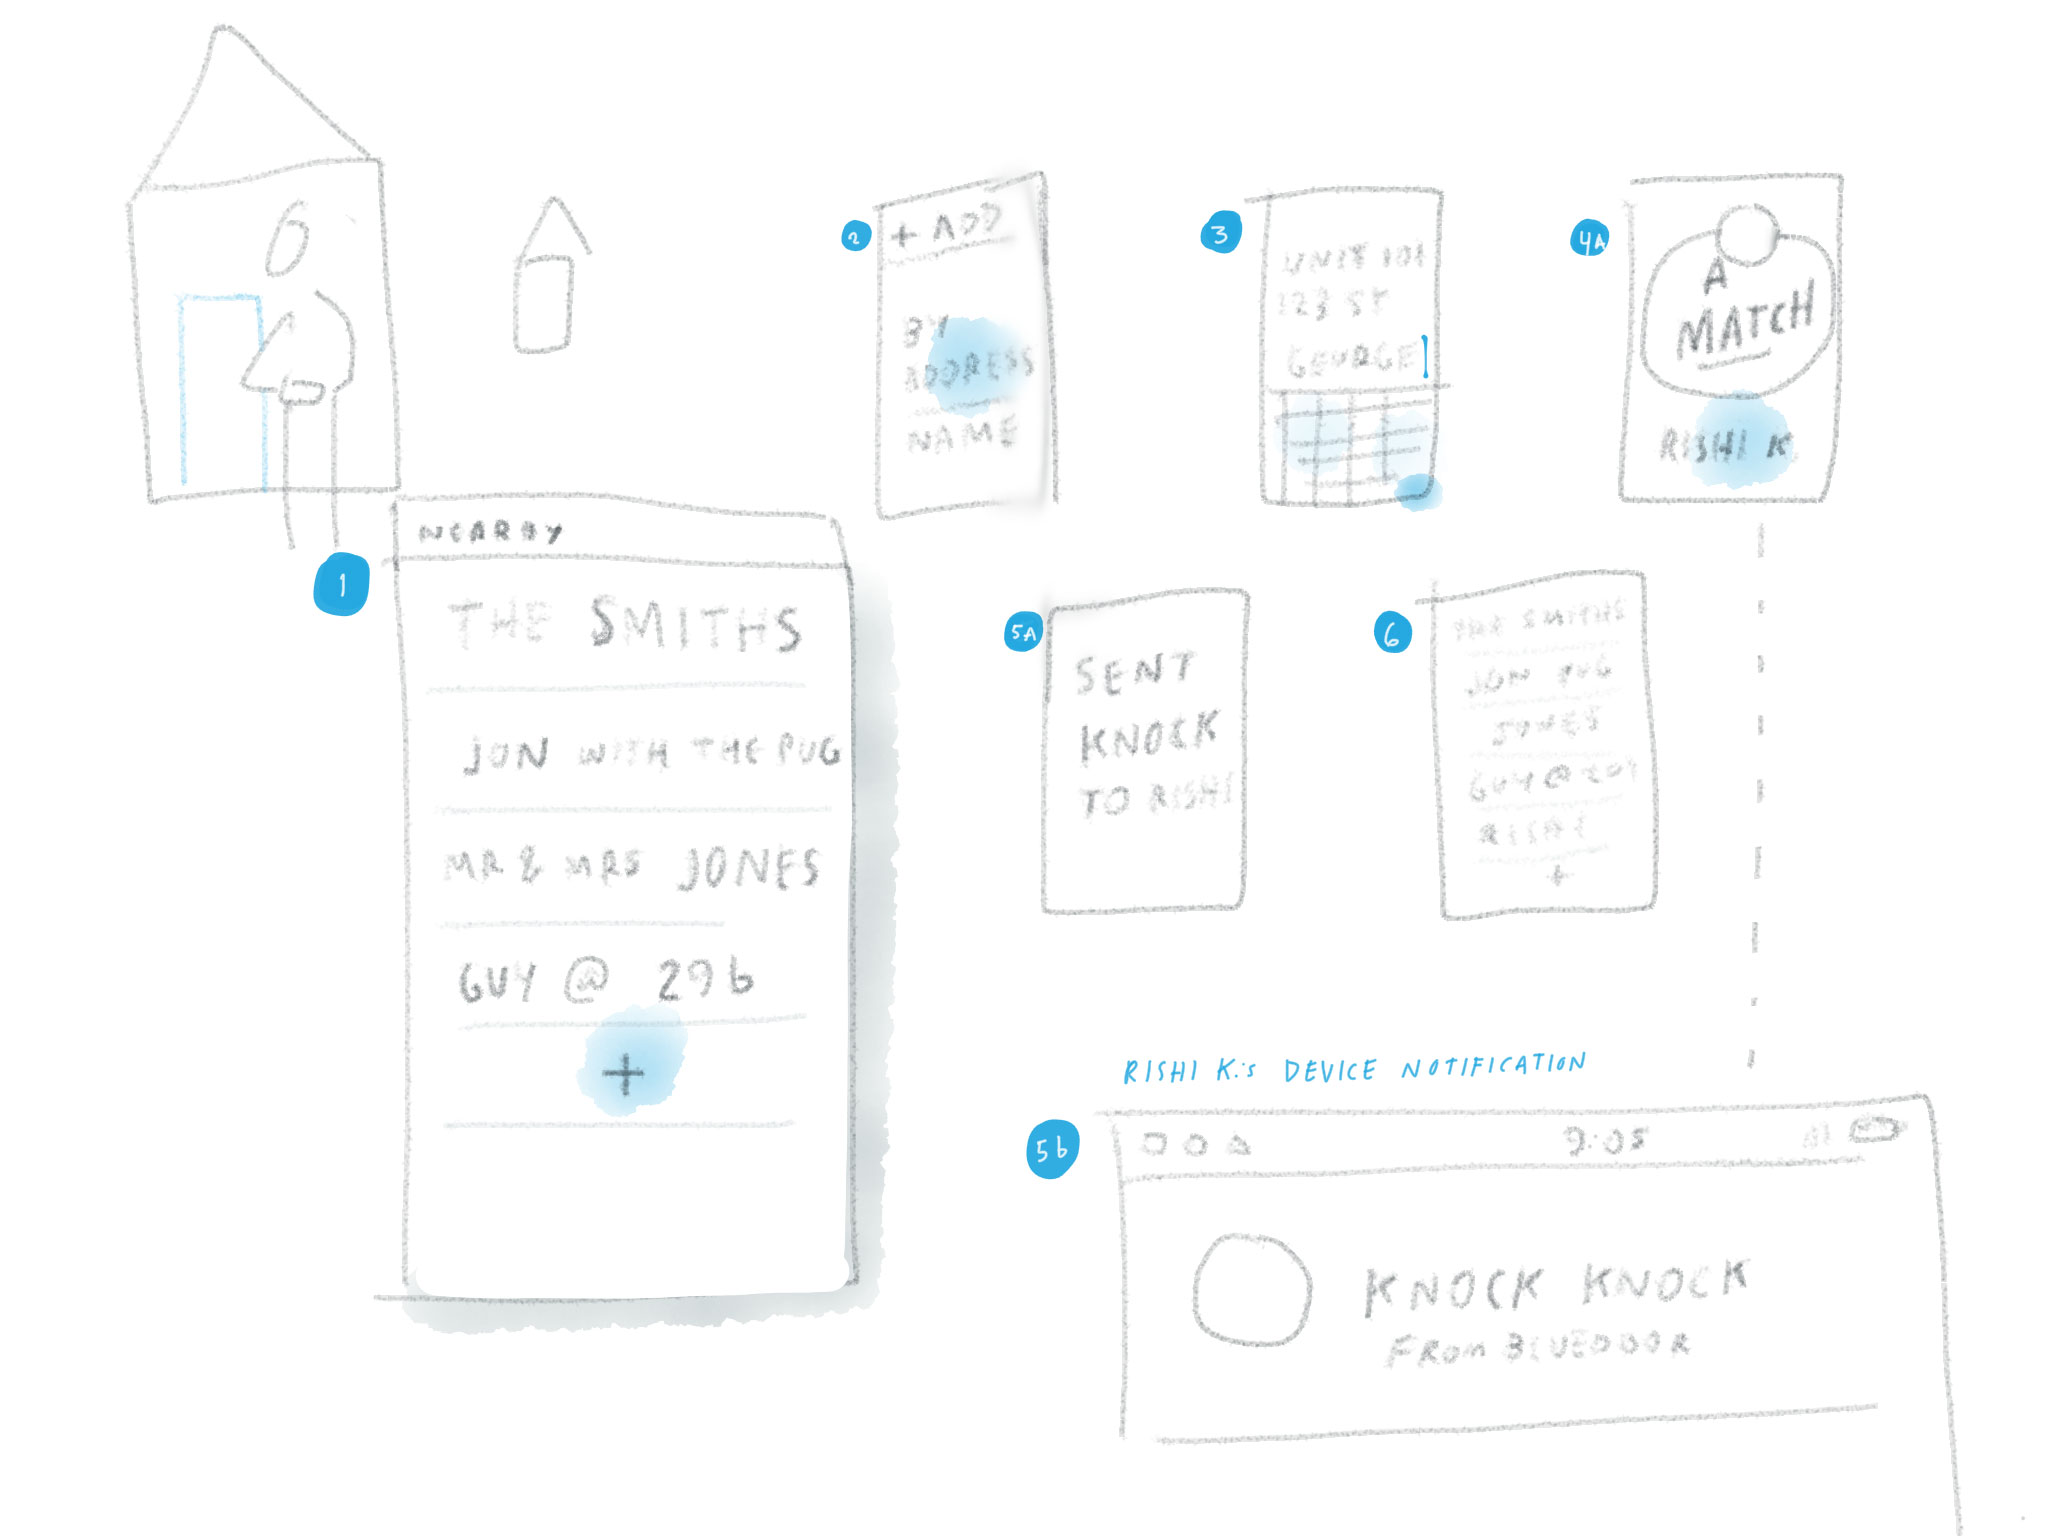 1
NEARBY
THE SMITHS
JON WITH THE PUG
MR & MRS JONES
GUY @ 29b
+
2
+ ADD
BY
ADDRESS
NAME
3
UNIT 101
123 ST
GEORGE
4A
A
MATCH
RISHI K.
5A
SENT
KNOCK
TO RISHI
6
THE SMITHS
JON PUG
JONES
GUY @ 29
RISHI
+
RISHI K.'s DEVICE NOTIFICATION
5b
9:05
KNOCK KNOCK
FROM BLUEDOOR